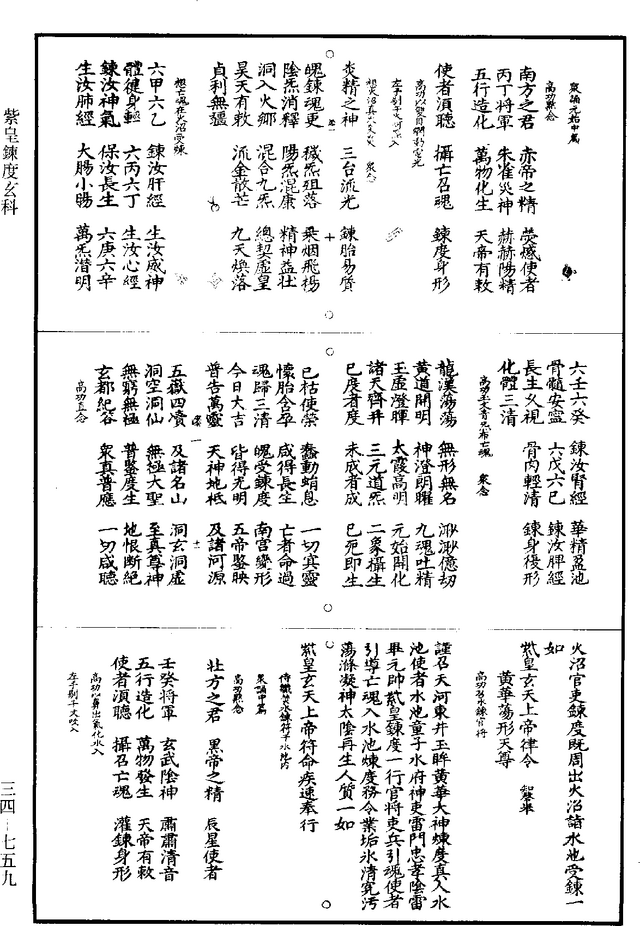 眾誦元始中篇
高功默念
南方之君　赤帝之精　熒惑使者
丙丁將軍　朱雀炎神　赫赫陽精
五行造化　萬物化生　天帝有敕
使者須聽　攝亡召魂　鍊度身形
炎精之神　三台流光　鍊胎易質
魄鍊魂更　穢炁殂落　乘烟飛揚
陰炁消釋　陽炁混康　精神益壯
洞入火鄉　混合九炁　總契虛皇
昊天有敕　流金散芒　九天煥落
貞利無疆
想亡魂在火沼受煉
六甲六乙　鍊汝肝經　生汝威神
體健身輕　六丙六丁　生汝心經
鍊汝神氣　保汝長生　六庚六辛
生汝肺經　大腸小腸　萬炁潛明
六壬六癸　鍊汝腎經　華精盈池
骨髓安寧　六戊六己　鍊汝脾經
長生久視　骨肉輕清　鍊身復形
化體三清
眾念
龍漢蕩蕩　無形無名　渺渺億劫
黃道開明　神澄朗耀　九魂吐精
玉虛澄暉　太霞高明　元始開化
諸天齊并　三元道炁　二象攝生
已度者度　未成者成　已死即生
已枯使榮　蠢動蛸息　一切冥靈
懷胎含孕　咸得長生　亡者命過
魂歸三清　魄受鍊度　南宮變形
今日大吉　皆得光明　五帝鑒映
普告萬靈　天神地祇　及諸河源
五嶽四瀆　及諸名山　洞玄洞虛
洞空洞仙　無極大聖　至真尊神
無窮無極　普鑒度生　地恨斷絕
玄都紀名　眾真普應　一切咸聽
高功五念
火沼官吏鍊度既周出火沼詣水池受鍊一
如
紫皇玄天上帝律令
黃華蕩形天尊
高功召水鍊官將
謹召天河東井玉眸黃華大神煉度真人水
池使者水池童子水府神吏雷門忠孝陰雷
畢元帥紫皇鍊度一行官將吏兵引魂使者
引導亡魂入水池煉度務令業垢氷清冤污
蕩滌凝神太陰再生人質一如
紫皇玄天上帝符命疾速奉行
侍職焚水鍊符于水池内
眾誦中篇
高功默念
壯方之君　黑帝之精　辰星使者
壬癸將軍　玄武陰神　肅肅清音
五行造化　萬物發生　天帝有敕
使者須聽　攝召亡魂　灌鍊身形
高功以鼻出氣化水入
左手剔子文吹入
紫皇鍊度玄科
三四-七五九